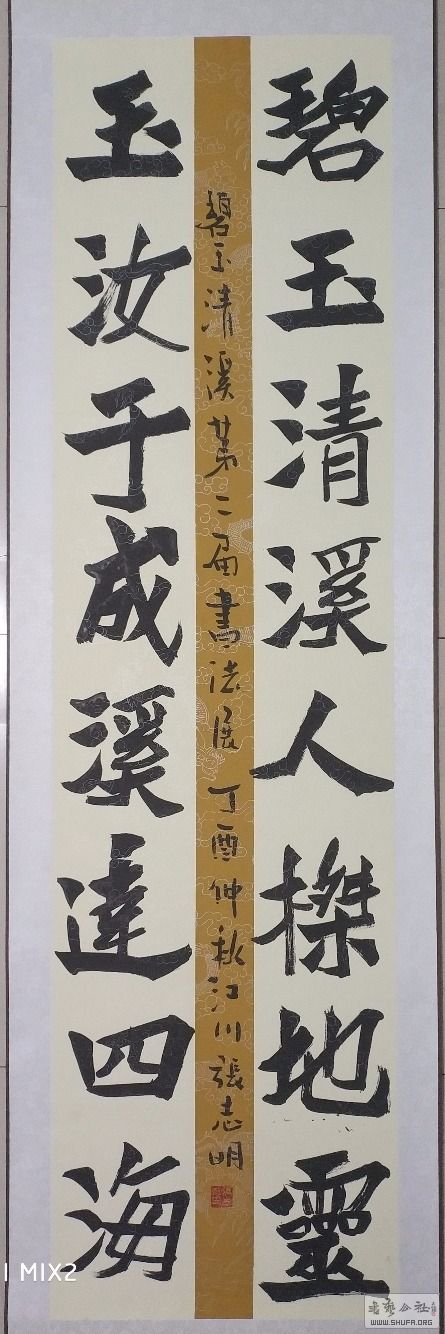 碧玉清溪人傑地靈
碧玉清溪第二届書法展 丁酉仲秋江川張志明
玉汝于成溪達四海
MIX2
WWW.SHUFA.ORG